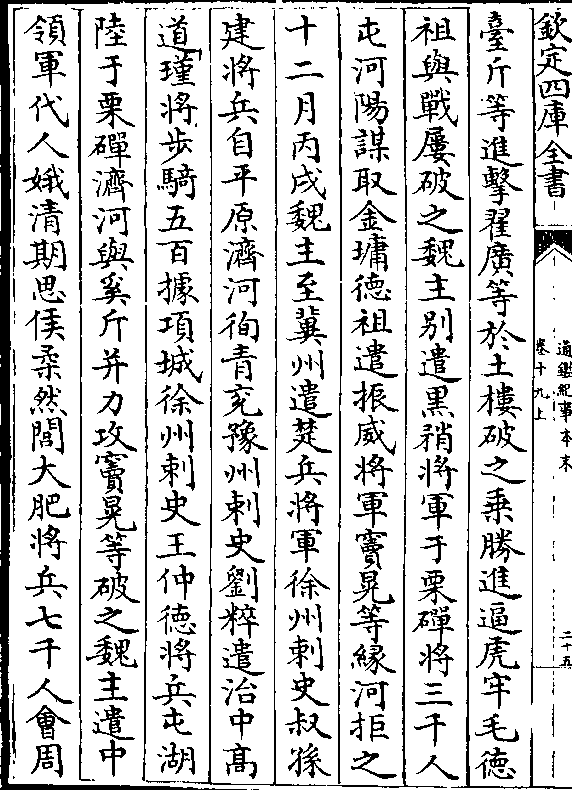 欽定四庫全書
通鑑紀事本末
卷十九上
二十五
臺斤等進擊翟廣等於土樓破之乗勝進逼虎牢毛德
祖與戰屢破之魏主别遣黒矟將軍于栗磾將三千人
屯河陽謀取金墉德祖遣振威將軍竇晃等緣河拒之
十二月丙戌魏主至冀州遣楚兵將軍徐州刺史叔孫
建將兵自平原濟河徇青兖豫州刺史劉粹遣治中髙
道瑾將步騎五百據項城徐州刺史王仲德將兵屯湖
陸于栗磾濟河與奚斤并力攻竇晃等破之魏主遣中
領軍代人娥清期思侯柔然閭大肥將兵七千人會周